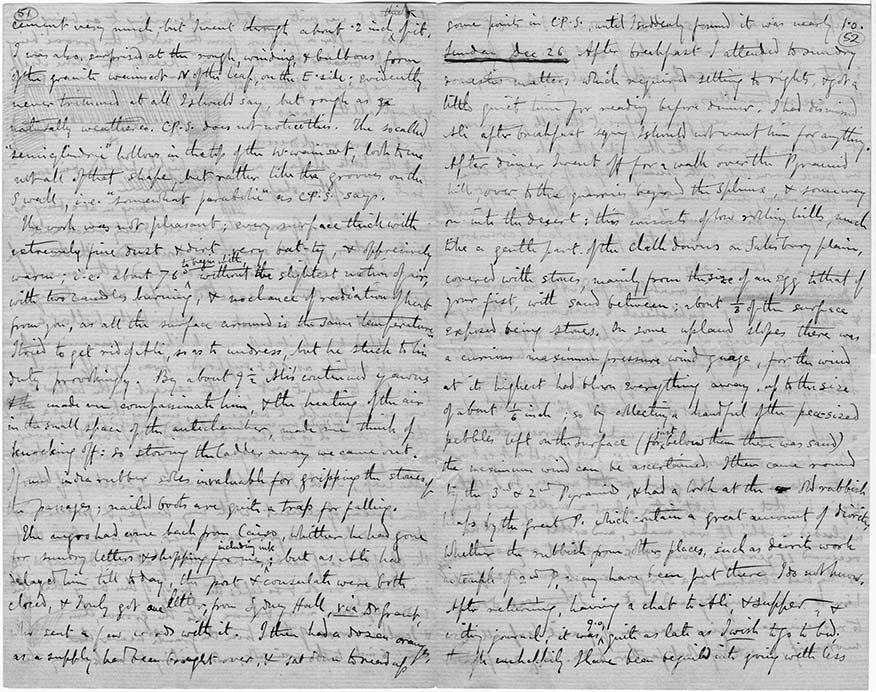 51
cement very much, but I went through about .2 inch thick of it.
I was also surprised at the rough, winding & bulbous form
of the granite wainscot N of the leaf, on the E side; evidently
never trimmed at all I should say, but rough as
naturally weathered. C.P.S. does not notice this. The so called
"semicylindric" hollows in the top of the W wainscot, look to me
not all of that shape, but rather like the grooves on the
S wall, i.e. "somewhat parabolic" as C.P.S. says.
The work was not pleasant; every surface thick with
extremely fine dust & dirt, very bat-ty, & oppressively
warm; i.e. about 76° to begin with without the slightest motion of air,
with two candles burning, & no chance of radiation of heat
from you, as all the surface around is the same temperature.
I tried to get rid of Ali, so as to undress, but he stuck to his
duty provokingly. By about 9½ Ali's continued yawns
made me compassionate him, & the heating of the air
in the small space of the antechamber, made me think of
knocking off: so stowing the ladder away we came out.
I found indiarubber soles invaluable for gripping the stones of
the passages; nailed boots are quite a trap for falling.
The negro had come back from Cairo, whither he had gone
for sundry letters & shopping including ink for me; but as Ali had
delayed him till today, the post & consulate were both
closed, & I only got one letter, from Sydney Hall, via Dr Grant,
who sent a few words with it. I then had a dozen oranges
as a supply had been brought over, & sat down to read up
52
some points in C.P.S. until I suddenly found it was nearly 1.0.
Sunday Dec 26. After breakfast I attended to sundry
domestic matters which required setting to rights, & got a
little quiet time for reading before dinner; I had dismissed
Ali after breakfast saying I should not want him for anything.
After dinner I went off for a walk over the Pyramid
hill over to the quarries beyond the Sphinx, & some way
on into the desert; this consists of low rolling hills, much
like a gentle part of the chalk downs on Salisbury plain,
covered with stones, mainly from the size of an egg to that of
your fist, with sand between; about ⅓ of the surface
exposed being stones. On some upland slopes there was
a curious maximum pressure wind guage, for the wind
at its highest had blown everything away, up to the size
of about ⅙ inch: so by collecting a handful of the pea-sized
pebbles left on the surface (for just below them there was sand)
the maximum wind can be ascertained. I then came round
by the 3rd & 2nd Pyramid, & had a look at the old rubbish
heaps by the great P. which contain a great amount of diorite,
whether the rubbish from other places, such as diorite work
in temple of 2nd P, may have been put there I do not know.
After returning, having a chat to Ali, & supper, &
writing journal, it was 9.10, quite as late as I wish to go to bed.
though unhappily I have been beguiled into going with less